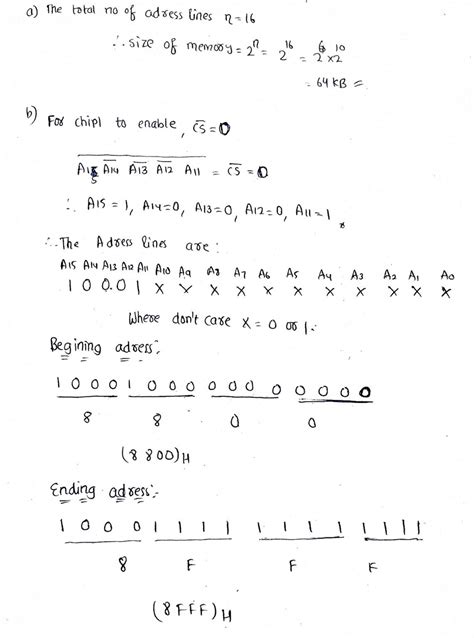 a) The total no of adress lines n=16
∴ size of memory = 2ⁿ = 2¹⁶ = 2⁶ × 2¹⁰
= 64 KB
b) For chip1 to enable, C̅S̅ = 0
A15 A̅1̅4̅ A̅1̅3̅ A̅1̅2̅ A11 = C̅S̅ = 0
∴ A15 = 1, A14=0, A13=0, A12=0, A11=1
∴ The Adress lines are:
A15 A14 A13 A12 A11 A10 A9 A8 A7 A6 A5 A4 A3 A2 A1 A0
1 0 0 0 1 X X X X X X X X X X X
Where don't care X = 0 or 1.
Begining adress:
1 0 0 0 1 0 0 0 0 0 0 0 0 0 0 0
8 8 0 0
(8800)H
Ending adress:-
1 0 0 0 1 1 1 1 1 1 1 1 1 1 1 1
8 F F F
(8FFF)H